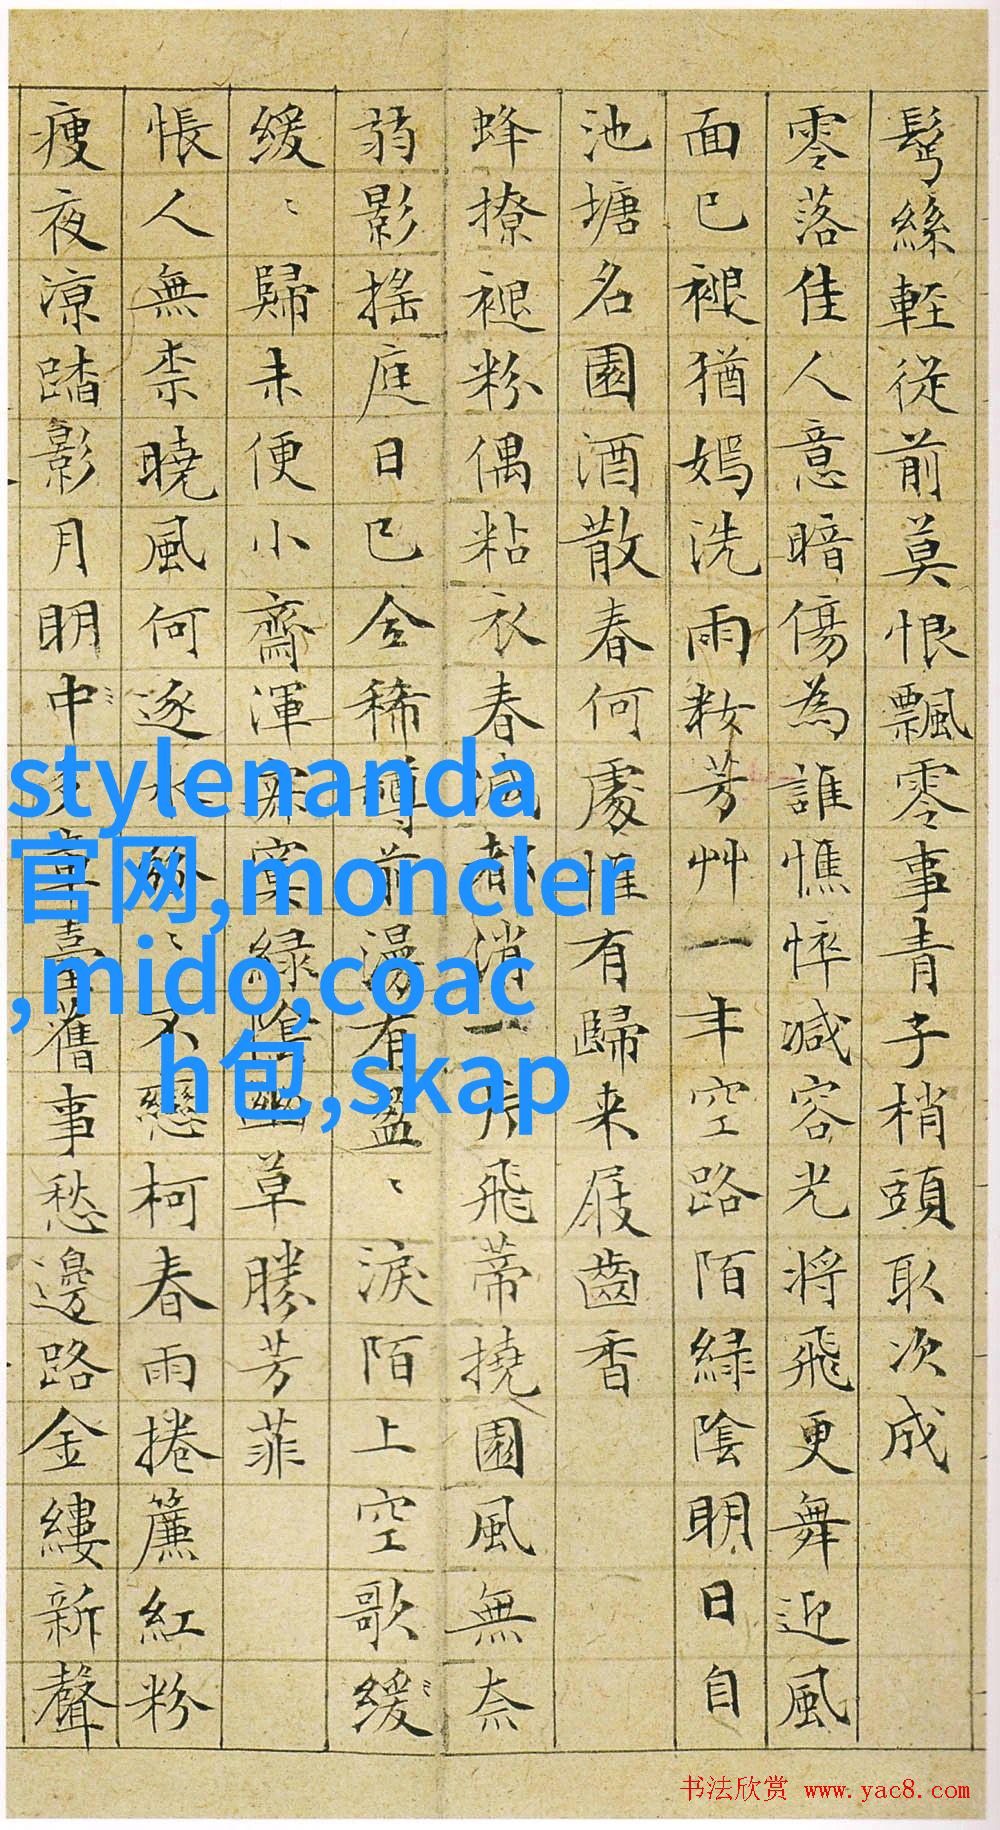 鬓絲輕從前莫恨飄零事青子梢頭取次成
零落佳人意暗傷為誰憔悴減容光將飛更舞迎風
面已褪猶嫣洗雨妝芳艸一半空路陌綠陰明日自
池塘名園酒散春何處惟有歸来屐齒香
蜂撩褪粉偶粘衣春減都消一片飛蒂撓園風無奈
弱影搖庭日已全稀尊前漫有盈〻淚陌上空歌緩
緩〻歸未便小齋渾寂寞綠陰幽草勝芳菲
悵人無柰曉風何逐水紛〻不戀柯春雨捲簾紅粉
瘦夜涼踏影月明中章臺舊事愁邊路金縷新聲
stylenanda
官网,moncler
,mido,coac
h包,skap
书法欣赏 www.yac8.com